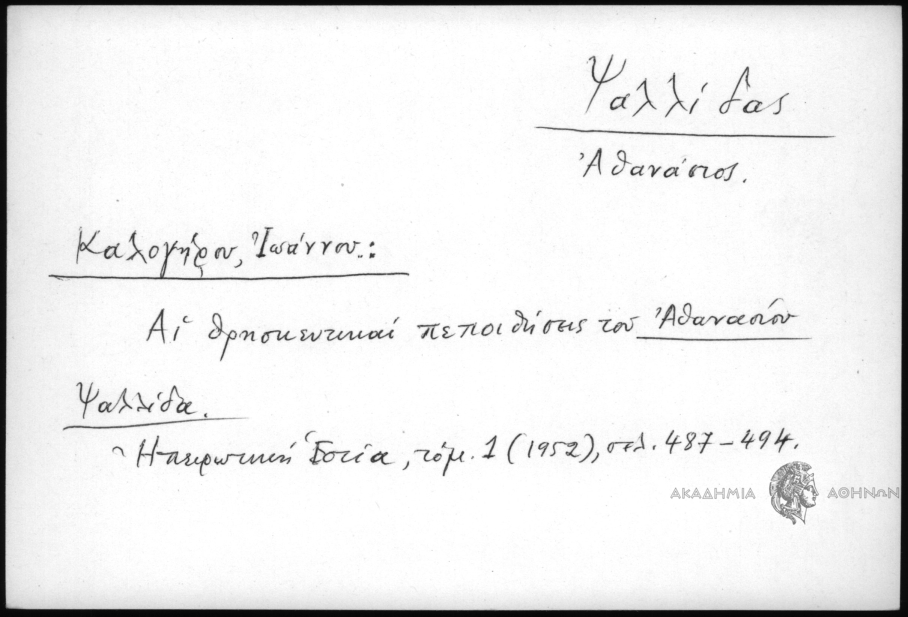 Ψαλλίδας
Ἀθανάσιος.
Καλογήρου, Ἰωάννου.:
Αἱ θρησκευτικαί πεποιθήσεις τοῦ Ἀθανασίου
Ψαλλίδα.
Ἠπειρωτική Ἑστία, τόμ. 1 (1952), σελ. 487-494.
ΑΚΑΔΗΜΙΑ ΑΘΗΝΩΝ